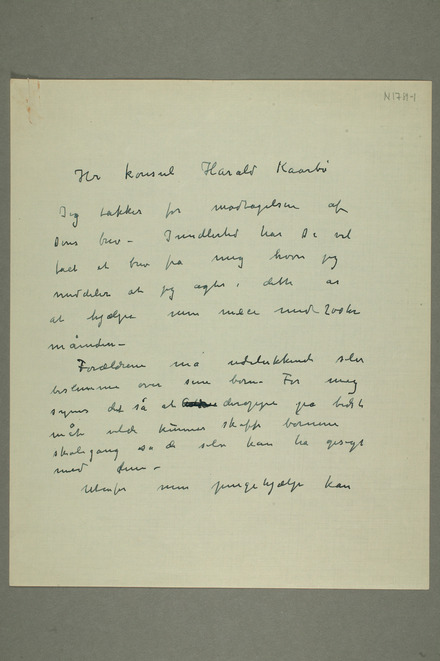 N1711-1
Hr konsul Harald Kaarbø
Jeg takker for modtagelsen af
Deres brev - Imidlertid har De vel
fået et brev fra mig hvori jeg
meddeler at jeg agter i dette år
at hjælpe med 200 kr
måneden -
Forældrene må udelukkende selv
bestemme over sine børn - For mig
synes det så at deroppe på bedste
måte vilde kunne skaffe børnene
skolegang så de selv kan ha
med dem -
Utenfor min pengehjælp kan